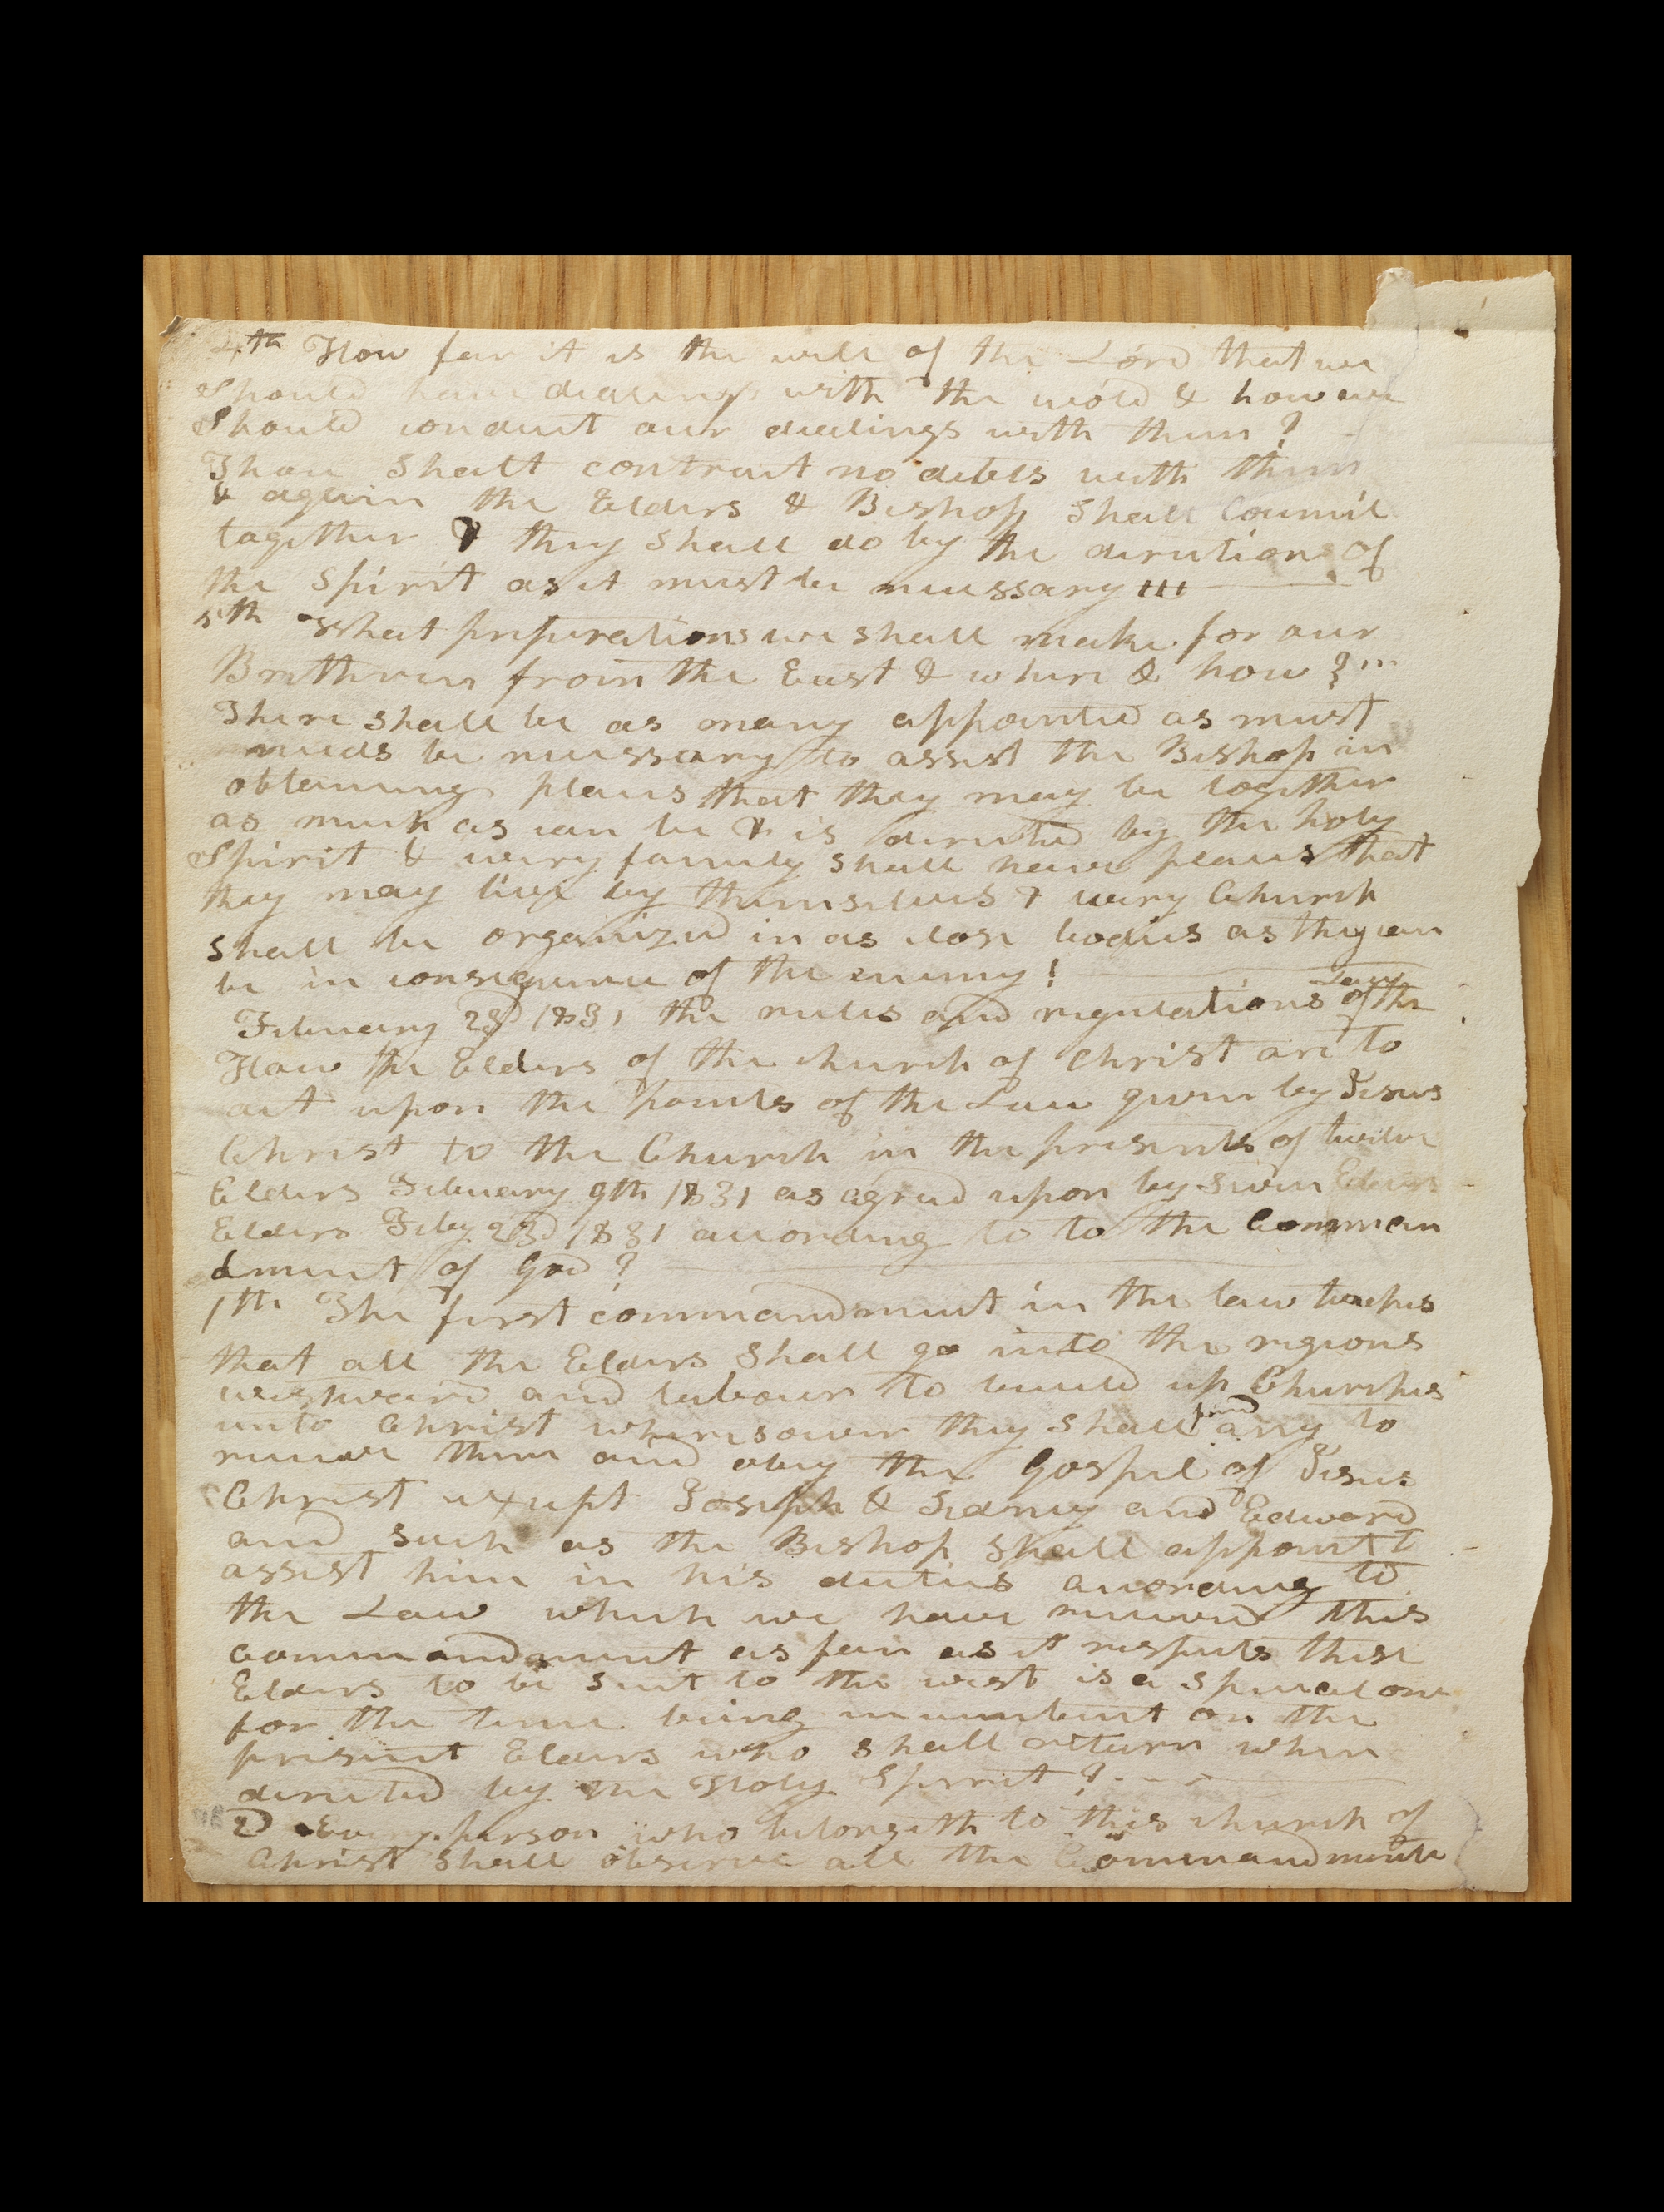 4th How far it is the will of the Lord that we
Should have dealings with the wold & how we
Should conduct our dealings with them?
Thou Shalt contract no debts with them
& again the Elders & Bishop Shall Council
together & they Shall do by the direction of
the Spirit as it must be necessary
5th What preperations we shall make for our
Brethren from the East & where & how?
There shall be as many appointed as must
needs be necessary to assist the Bishop in
obtaining places that they may be together
as much as can be & is directed by the holy
Spirit & every family shall have places that
they may live by themselves & every Church
shall be organized in as close bodies as they can
be in consequence of the enemy!
February 23d 1831 the rules and regulations of the Law
How the Elders of the church of Christ are to
act upon the points of the Law given by Jesus
Christ to the Church in the presents of twelve
Elders February 9th 1831 as agreed upon by Seven Elders
Elders Feby 23d 1831 according to to the Comman
dment of God?
1th The first commandment in the law teaches
that all the Elders Shall go into the regions
westward and labour to build up Churches
unto Christ wheresoever they Shall find any to
receive them and obey the Gospel of Jesus
Christ except Joseph & Sidney and Edward
and such as the Bishop Shall appoint t
assist him in his duties according to
the Law which we have received this
commandment as far as it respects these
Elders to be sent to the west is a special one
for the time being incumbent on the
present Elders who shall return when
directed by the Holy Spirit?
2d Every person who belongeth to this church of
Christ Shall observe all the Commandments